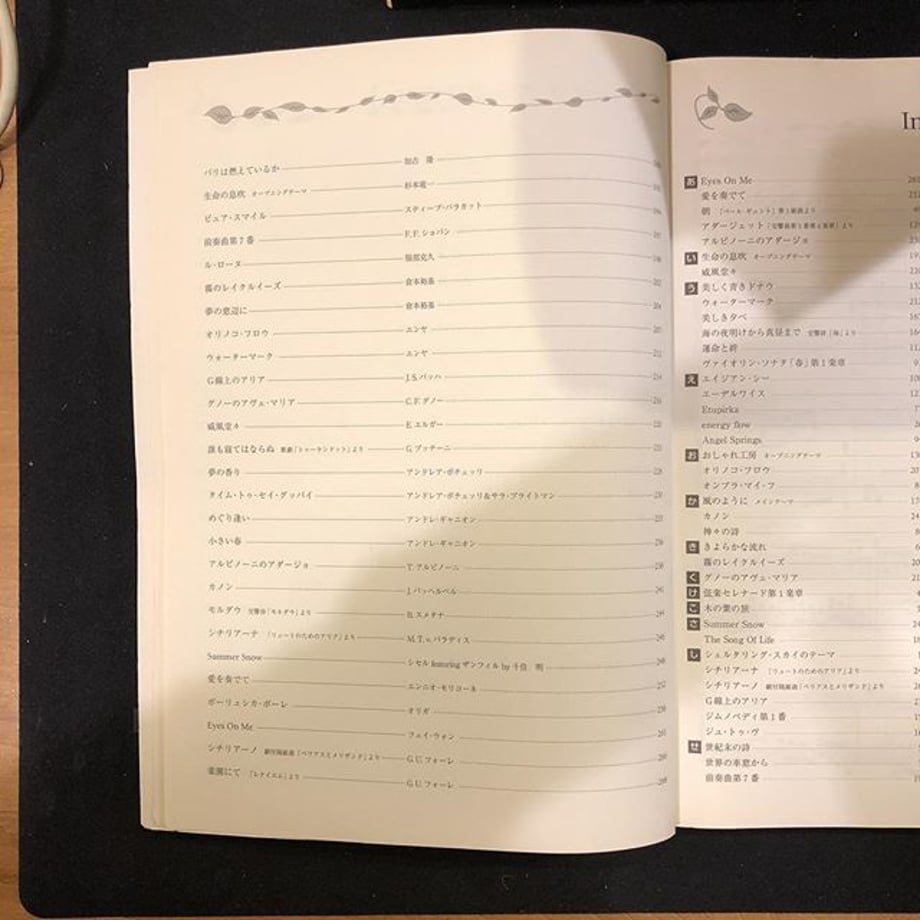 パリは燃えているか 加古 隆
生命の息吹 オープニングテーマ 杉本竜一
ピュア・スマイル スティーブ・バラカット
前奏曲第7番 F. F. ショパン
ル・ローヌ 服部克久
霧のレイクルイーズ 倉本裕基 202
夢の窓辺に 倉本裕基 204
オリノコ・フロウ エンヤ 207
ウォーターマーク エンヤ 212
G線上のアリア J. S. バッハ 214
グノーのアヴェ・マリア C. F. グノー
威風堂々 E. エルガー
誰も寝てはならぬ 歌劇「トゥーランドット」より G. プッチーニ
夢の香り アンドレア・ボチェッリ
タイム・トゥ・セイ・グッバイ アンドレア・ボチェッリ&サラ・ブライトマン
めぐり逢い アンドレ・ギャニオン
小さい春 アンドレ・ギャニオン
アルビノーニのアダージョ T. アルビノーニ
カノン J. パッヘルベル
モルダウ 交響詩「モルダウ」より B. スメタナ
シチリアーナ 「リュートのためのアリア」より M. T. v. パラディス
Summer Snow シセル featuring ザンフィル by 千住 明
愛を奏でて エンニオ・モリコーネ
ポーリュシカ・ポーレ オリガ
Eyes On Me フェイ・ウォン
シチリアーノ 「ペリアスとメリザンド」より G. U. フォーレ
楽園にて 「レクイエム」より G. U. フォーレ
In
あ Eyes On Me
愛を奏でて
朝 「ペール・ギュント」第1組曲より
アダージェット
アルビノーニのアダージョ
い 生命の息吹 オープニングテーマ
威風堂々
う 美しく青きドナウ
ウォーターマーク
美しき夕べ
海の夜明けから真昼まで 交響詩「海」より
運命と絆
ヴァイオリン・ソナタ「春」第1楽章
え エイジアン・シー
エーデルワイス
Etupirka
energy flow
Angel Springs
お おしゃれ工房 オープニングテーマ
オリノコ・フロウ
オンブラ・マイ・フ
か 風のように メインテーマ
カノン
神々の詩
き きよらかな流れ
霧のレイクルイーズ
く グノーのアヴェ・マリア
け 弦楽セレナード第1楽章
こ 木の葉の旅
さ Summer Snow
The Song Of Life
し シェルタリング・スカイのテーマ
シチリアーナ 「リュートのためのアリア」より
シチリアーノ 「ペリアスとメリザンド」より
G線上のアリア
ジムノペディ第1番
ジュ・トゥ・ヴ
せ 世紀末の詩
世界の車窓から
前奏曲第7番